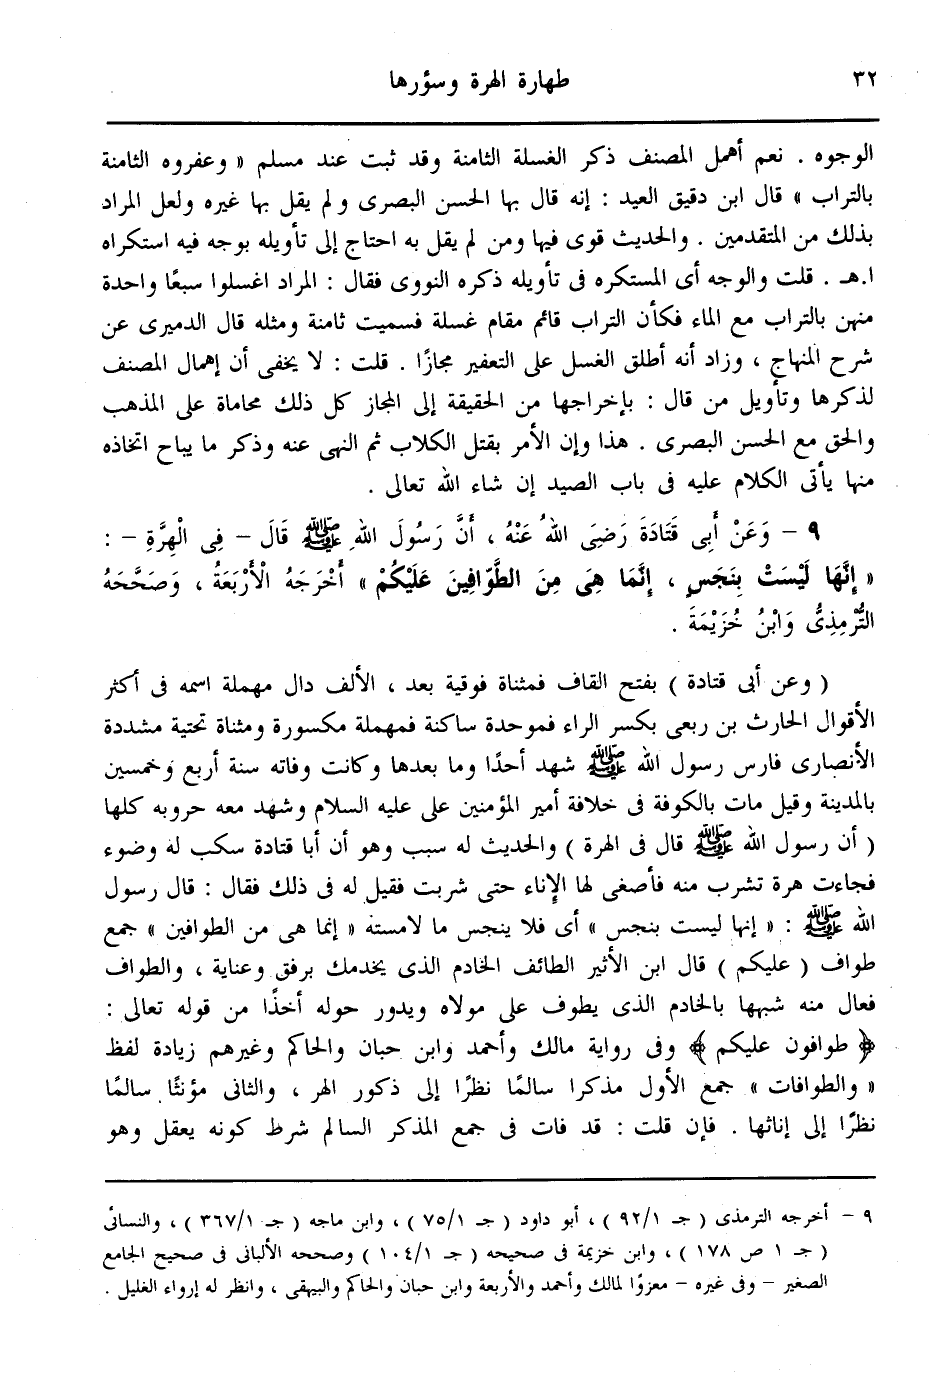 ٣٢
طهارة الهرة وسؤرها
الوجوه . نعم أهمل المصنف ذكر الغسلة الثامنة وقد ثبت عند مسلم « وعفروه الثامنة
بالتراب » قال ابن دقيق العيد : إنه قال بها الحسن البصرى ولم يقل بها غيره ولعل المراد
بذلك من المتقدمين . والحديث قوى فيها ومن لم يقل به احتاج إلى تأويله بوجه فيه استكراه
ا.هـ . قلت والوجه أى المستكره فى تأويله ذكره النووى فقال : المراد اغسلوا سبعًا واحدة
منهن بالتراب مع الماء فكأن التراب قائم مقام غسلة فسميت ثامنة ومثله قال الدميرى عن
شرح المنهاج ، وزاد أنه أطلق الغسل على التعفير مجازًا . قلت : لا يخفى أن إهمال المصنف
لذكرها وتأويل من قال : بإخراجها من الحقيقة إلى المجاز كل ذلك محاماة على المذهب
والحق مع الحسن البصرى . هذا وإن الأمر بقتل الكلاب ثم النهى عنه وذكر ما يباح اتخاذه
منها يأتى الكلام عليه فى باب الصيد إن شاء الله تعالى .
٩ – وَعَنْ أَبِى قَتَادَةَ رَضِىَ اللهُ عَنْهُ ، أَنَّ رَسُولَ اللهِ ﷺ قَالَ – فِى الْهِرَّةِ – :
« إِنَّهَا لَيْسَتْ بِنَجَسٍ ، إِنَّمَا هِىَ مِنَ الطَّوَّافِينَ عَلَيْكُمْ » أَخْرَجَهُ الْأَرْبَعَةُ ، وَصَحَّحَهُ
التِّرْمِذِىُّ وَابْنُ خُزَيْمَةَ .
( وعن أبى قتادة ) بفتح القاف فمثناة فوقية بعد ، الألف دال مهملة اسمه فى أكثر
الأقوال الحارث بن ربعى بكسر الراء فموحدة ساكنة فمهملة مكسورة ومثناة تحتية مشددة
الأنصارى فارس رسول الله ﷺ شهد أحدًا وما بعدها وكانت وفاته سنة أربع وخمسين
بالمدينة وقيل مات بالكوفة فى خلافة أمير المؤمنين على عليه السلام وشهد معه حروبه كلها
( أن رسول الله ﷺ قال فى الهرة ) والحديث له سبب وهو أن أبا قتادة سكب له وضوء
فجاءت هرة تشرب منه فأصغى لها الإناء حتى شربت فقيل له فى ذلك فقال : قال رسول
الله ﷺ : « إنها ليست بنجس » أى فلا ينجس ما لامسته « إنما هى من الطوافين » جمع
طواف ( عليكم ) قال ابن الأثير الطائف الخادم الذى يخدمك برفق وعناية ، والطواف
فعال منه شبهها بالخادم الذى يطوف على مولاه ويدور حوله أخذًا من قوله تعالى :
﴿ طوافون عليكم ﴾ وفى رواية مالك وأحمد وابن حبان والحاكم وغيرهم زيادة لفظ
« والطوافات » جمع الأول مذكرا سالمًا نظرًا إلى ذكور الهر ، والثانى مؤنثًا سالمًا
نظرًا إلى إناثها . فإن قلت : قد فات فى جمع المذكر السالم شرط كونه يعقل وهو
٩ – أخرجه الترمذى ( جـ ٩٢/١ ) ، أبو داود ( جـ ٧٥/١ ) ، وابن ماجه ( جـ ٣٦٧/١ ) ، والنسائى
( جـ ١ ص ١٧٨ ) ، وابن خزيمة فى صحيحه ( جـ ١٠٤/١ ) وصححه الألبانى فى صحيح الجامع
الصغير – وفى غيره – معزوًا لمالك وأحمد والأربعة وابن حبان والحاكم والبيهقى ، وانظر له إرواء الغليل .